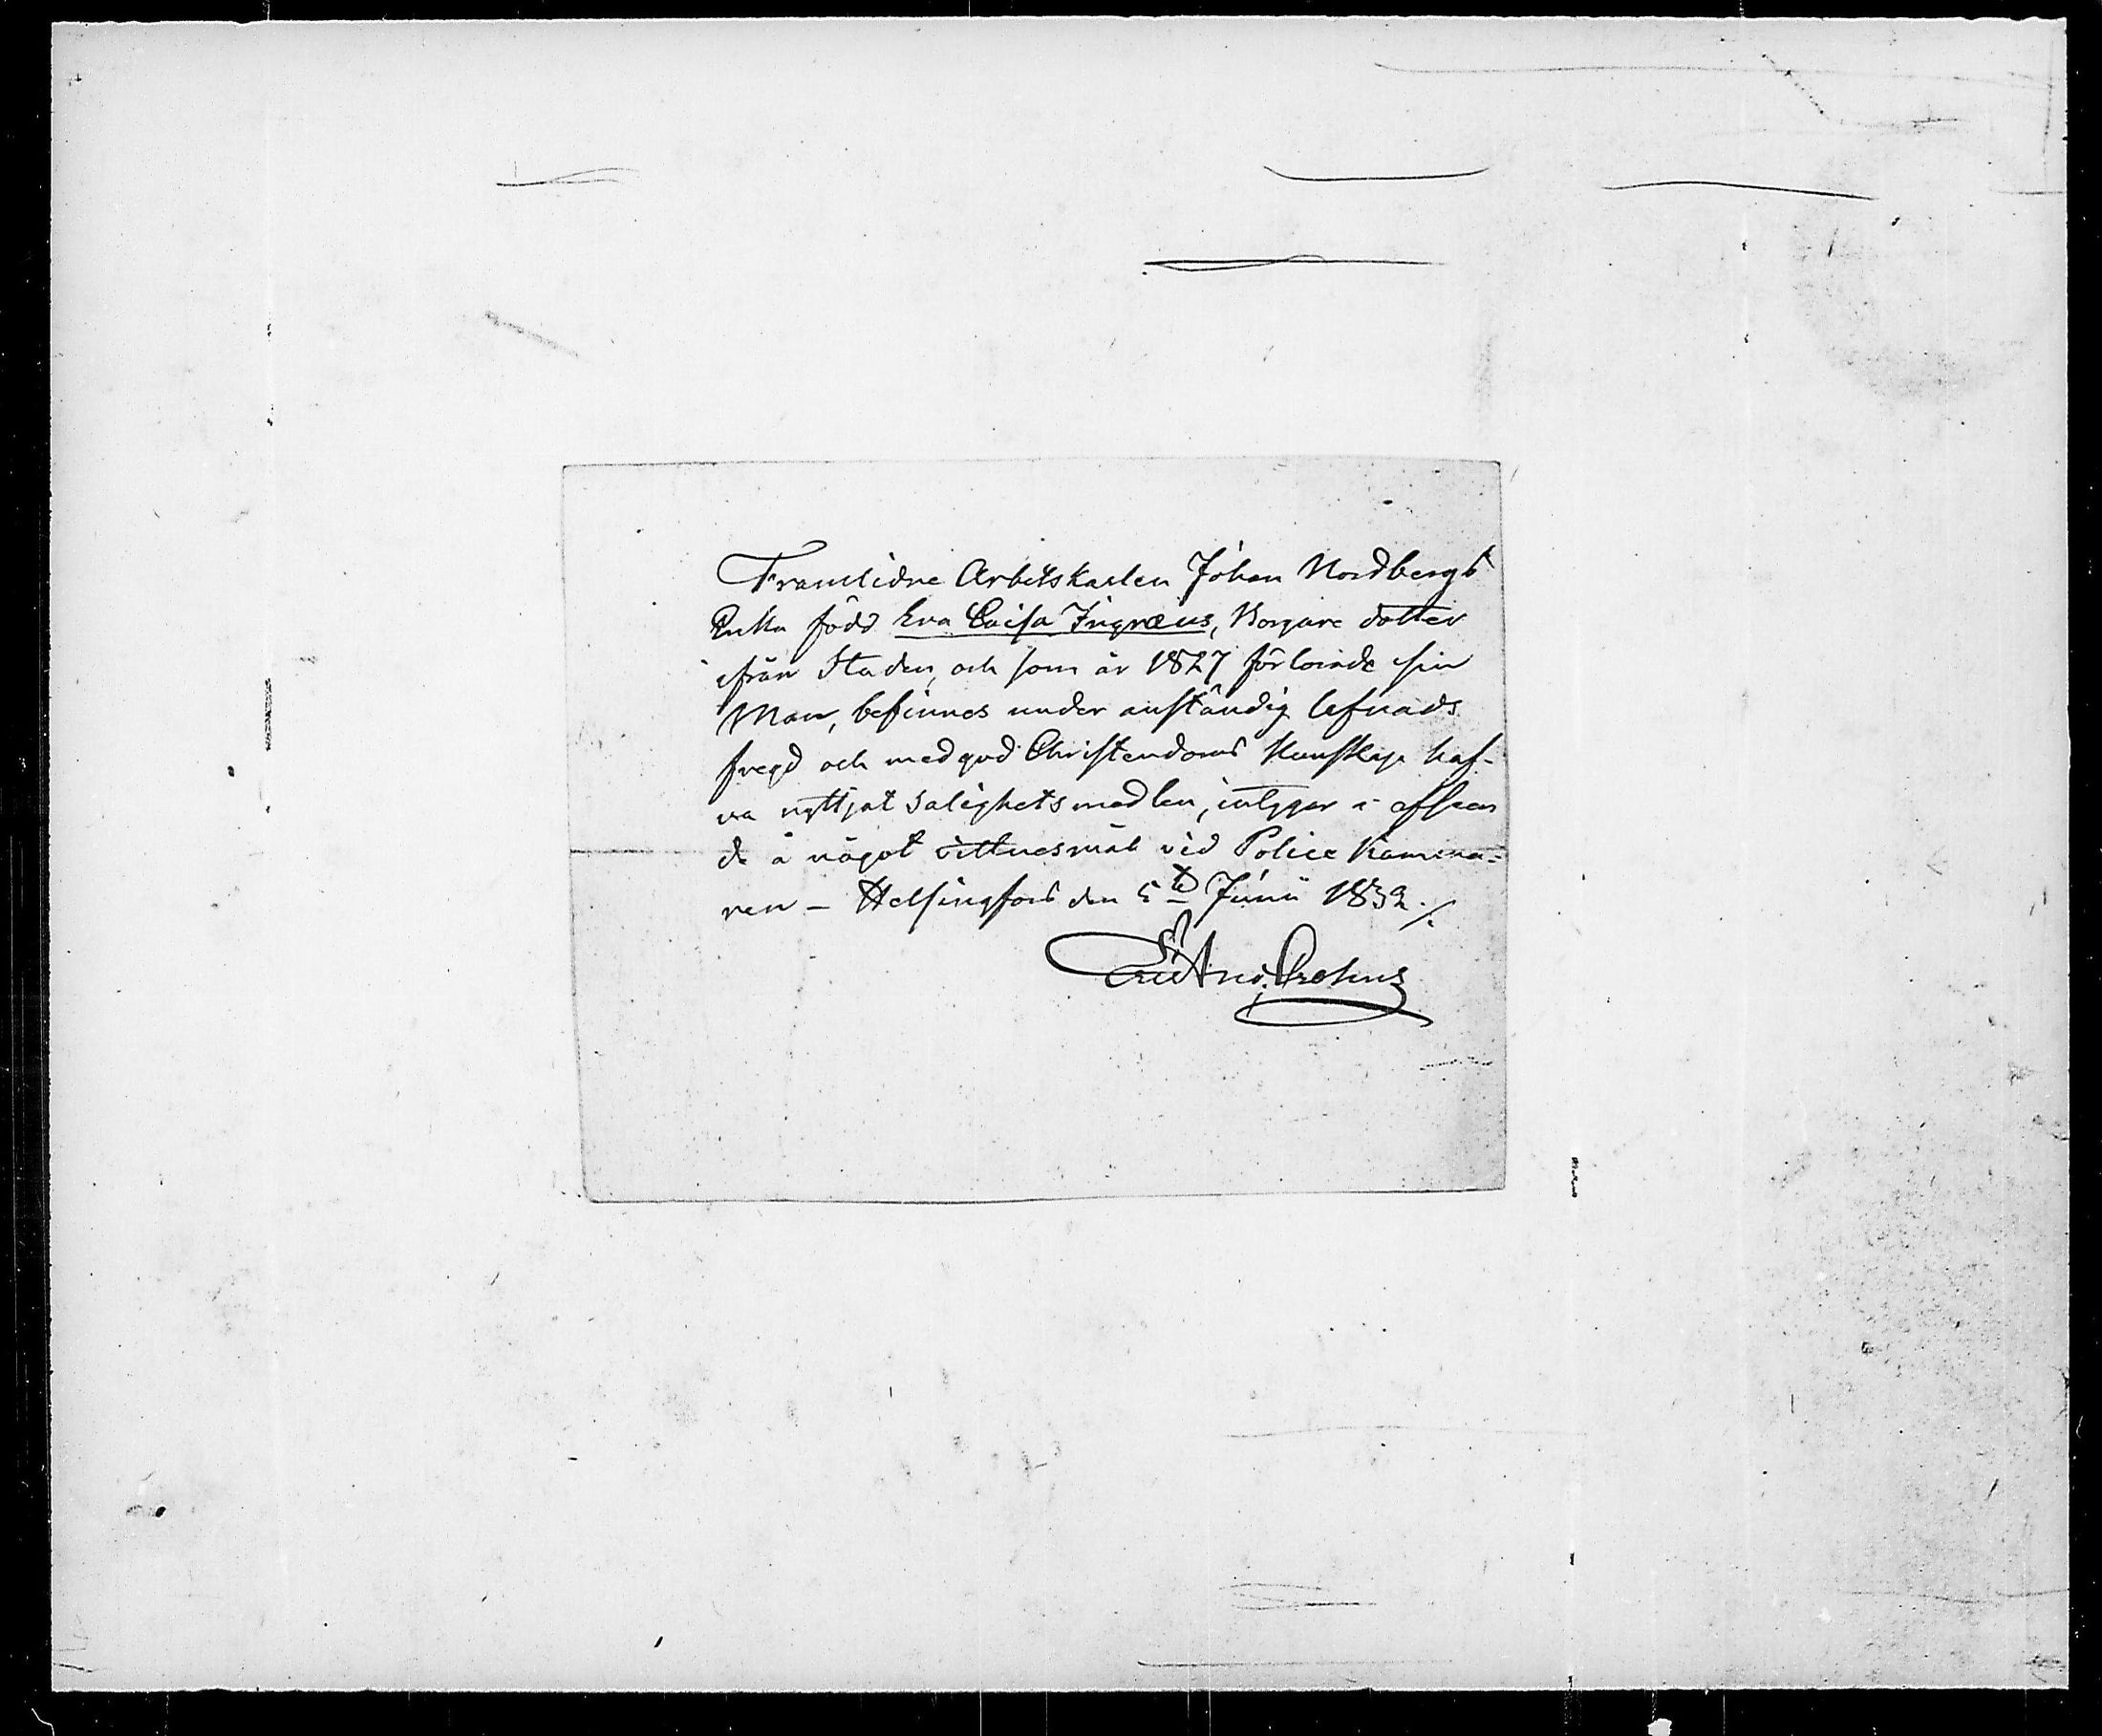 Framlidne Arbetskarlen Johan Nordbergs
Enka född Eva Caisa Ingræus, Borgare dotter
ifrån Staden, och som år 1827 förlorade sin
Man, befinnes under anständig lefnads
fregd och med god Christendoms Kunskap haf-
va nyttjat Salighetsmedlen, intygar i afseen
de å något vittnesmål vid Police Kamma-
ren – Helsingfors den 5te Junii 1832 ./.
Eric And. Crohns